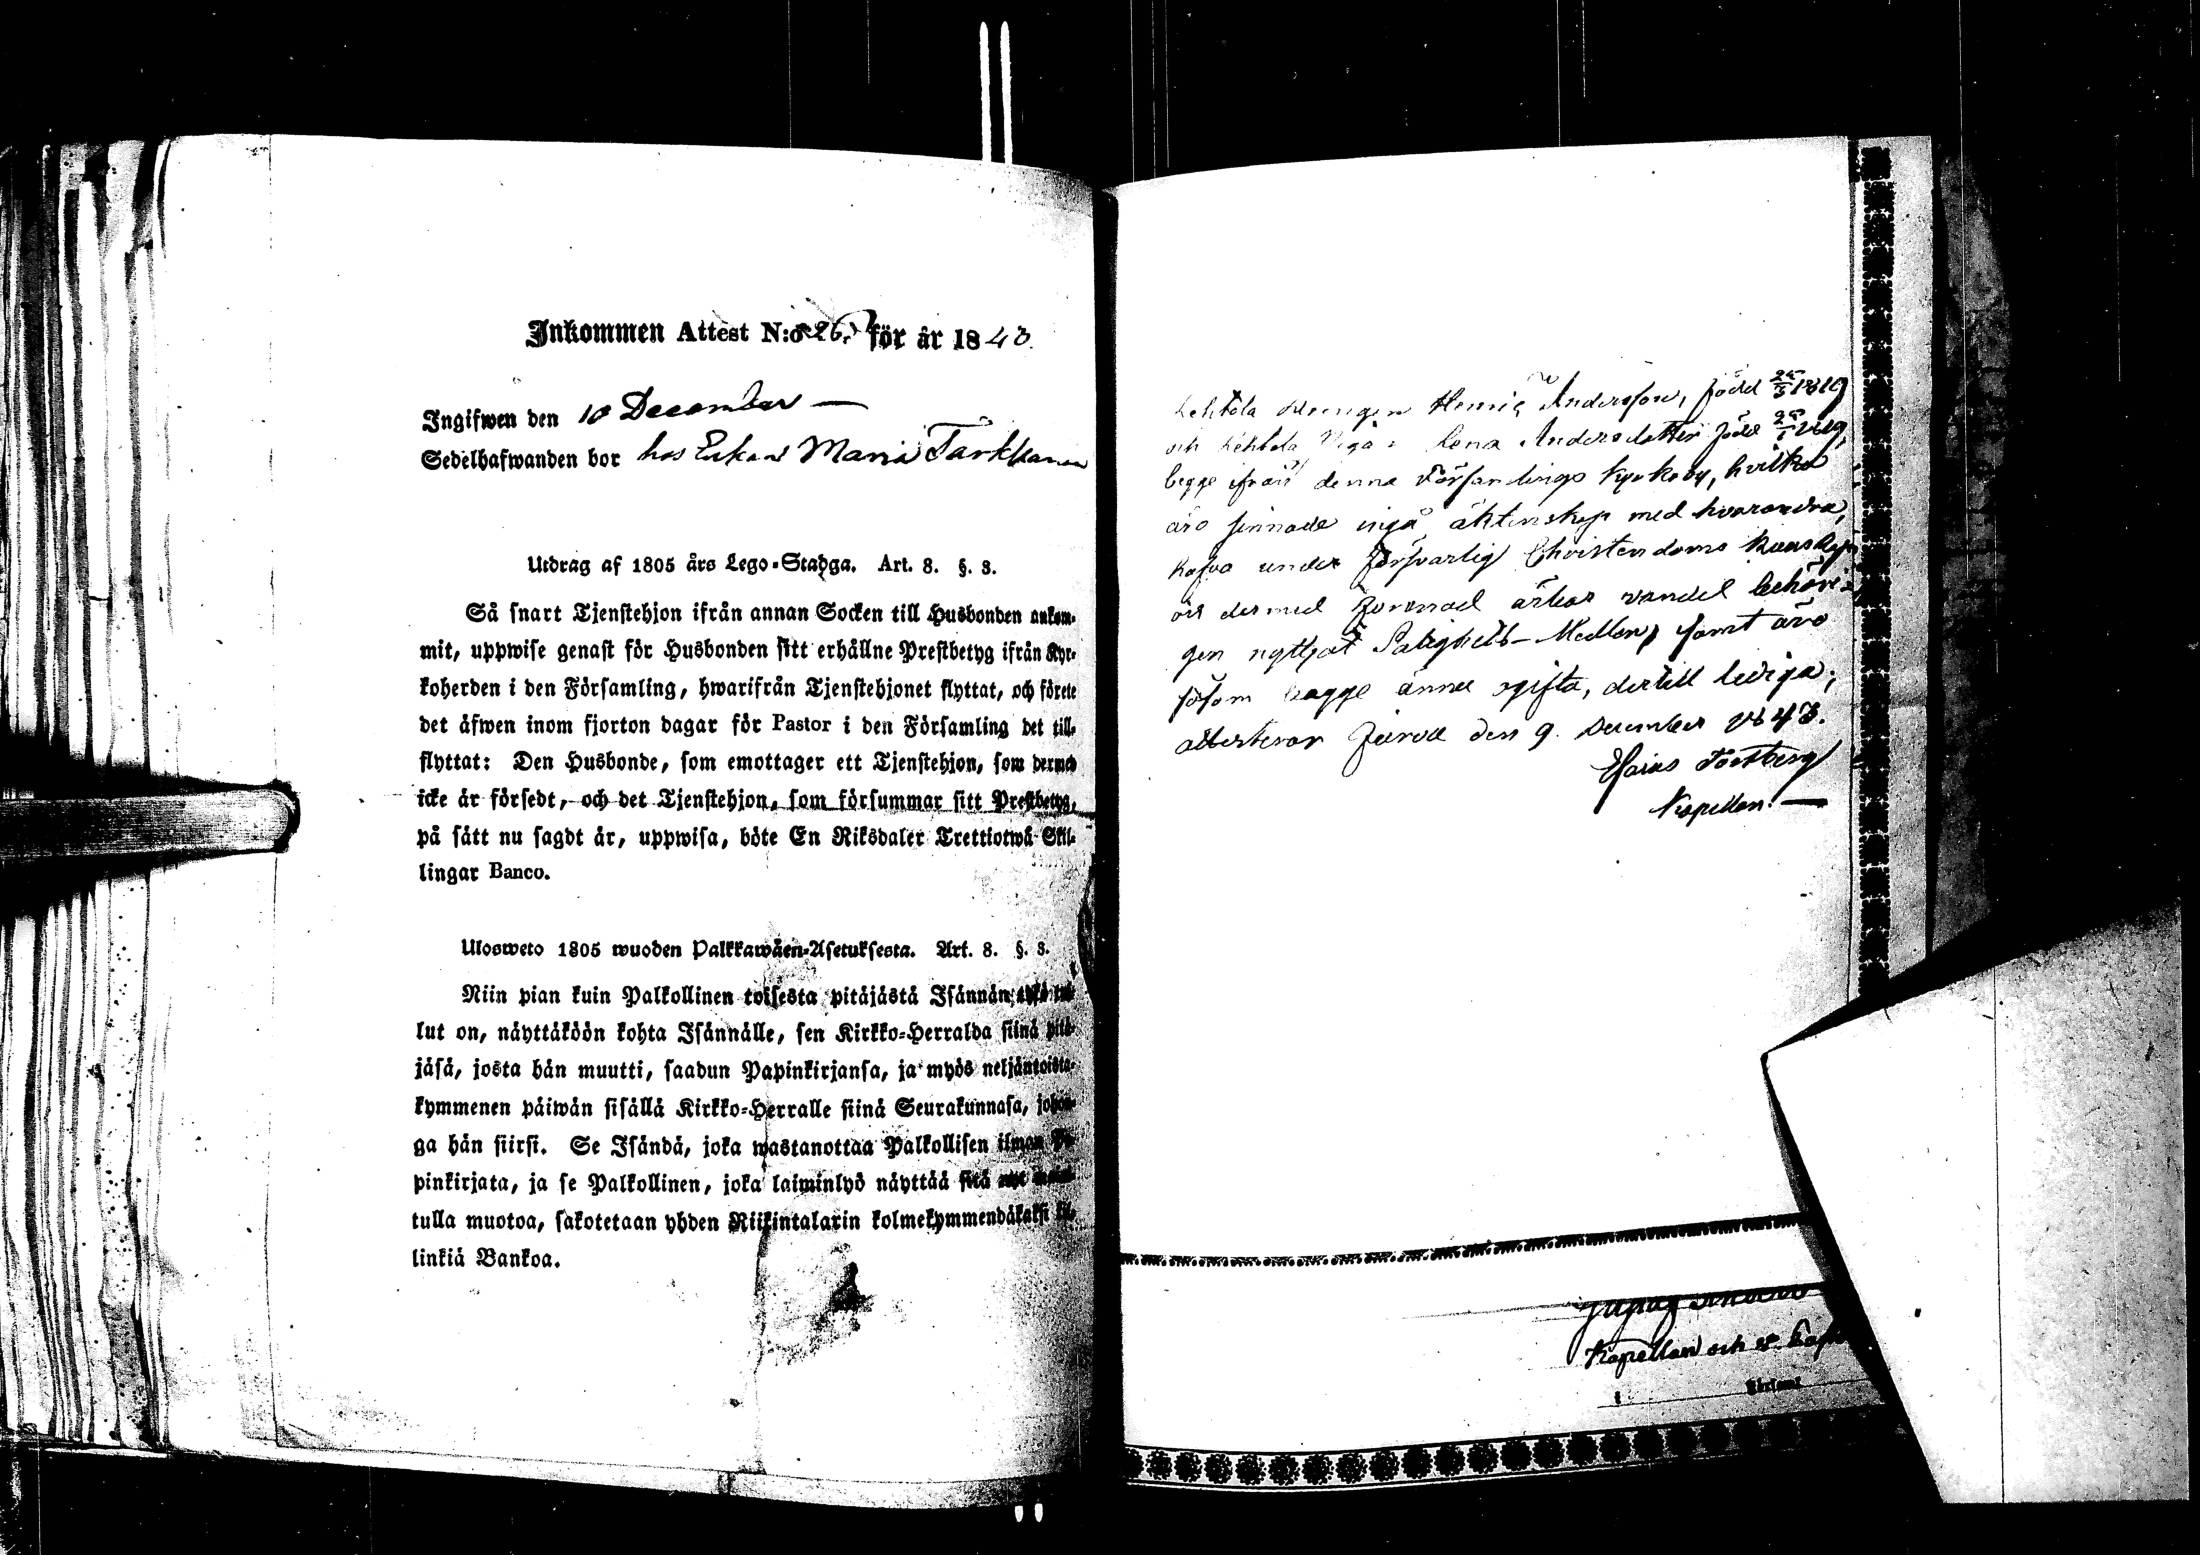 Inkommen Attest N:o 26. för år 1843.
Ingifwen den 10 December —
Sedelhafwanden bor hos Enkan Maria Tarkkanen
Utdrag af 1805 års Lego-Stadga. Art. 8. §. 3.
Så snart Tjenstehjon ifrån annan Socken till Husbonden ankom-
mit, uppwise genast för Husbonden sitt erhållne Prestbetyg ifrån Kyr-
koherden i den Församling, hwarifrån Tjenstehjonet flyttat, och förete
det äfwen inom fjorton dagar för Pastor i den Församling det till-
flyttat: Den Husbonde, som emottager ett Tjenstehjon, som dermed
icke är försedt, och det Tjenstehjon, som försummar sitt Prestbetyg,
på sätt nu sagdt är, uppwisa, böte En Riksdaler Trettiotwå Skil-
lingar Banco.
Ulosweto 1805 wuoden Palkkawäen-Asetuksesta. Art. 8. §. 3.
Niin pian kuin Palkollinen toisesta pitäjästä Isännän
lut on, näyttäköön kohta Isännälle, sen Kirkko-Herralda siinä pitä-
jäsä, josta hän muutti, saadun Papinkirjansa, ja myös neljäntoista-
kymmenen päiwän sisällä Kirkko-Herralle siinä Seurakunnasa, johon-
ga hän siirsi. Se Isändä, joka wastanottaa Palkollisen ilman Pa-
pinkirjata, ja se Palkollinen, joka laiminlyö näyttää sitä
tulla muotoa, sakotetaan yhden Riikintalarin kolmekymmendäkaksi kil-
linkiä Bankoa.
Drengen Henric Andersson, född 1819
och Piga Lena Andersdotter född
begge ifrån denna Församlings Kyrkoby, hvilka
äro sinnade ingå äktenskap med hvarandra,
hafva under försvarlig Christendoms kunskap
och dermed förenad ärbar vandel behöri-
gen nyttjat Salighets-Medlen, samt äro
såsom begge ännu ogifta, dertill lediga;
attesterar den 9. December 1843.
Esaias
Kapellan. —
Kapellan och